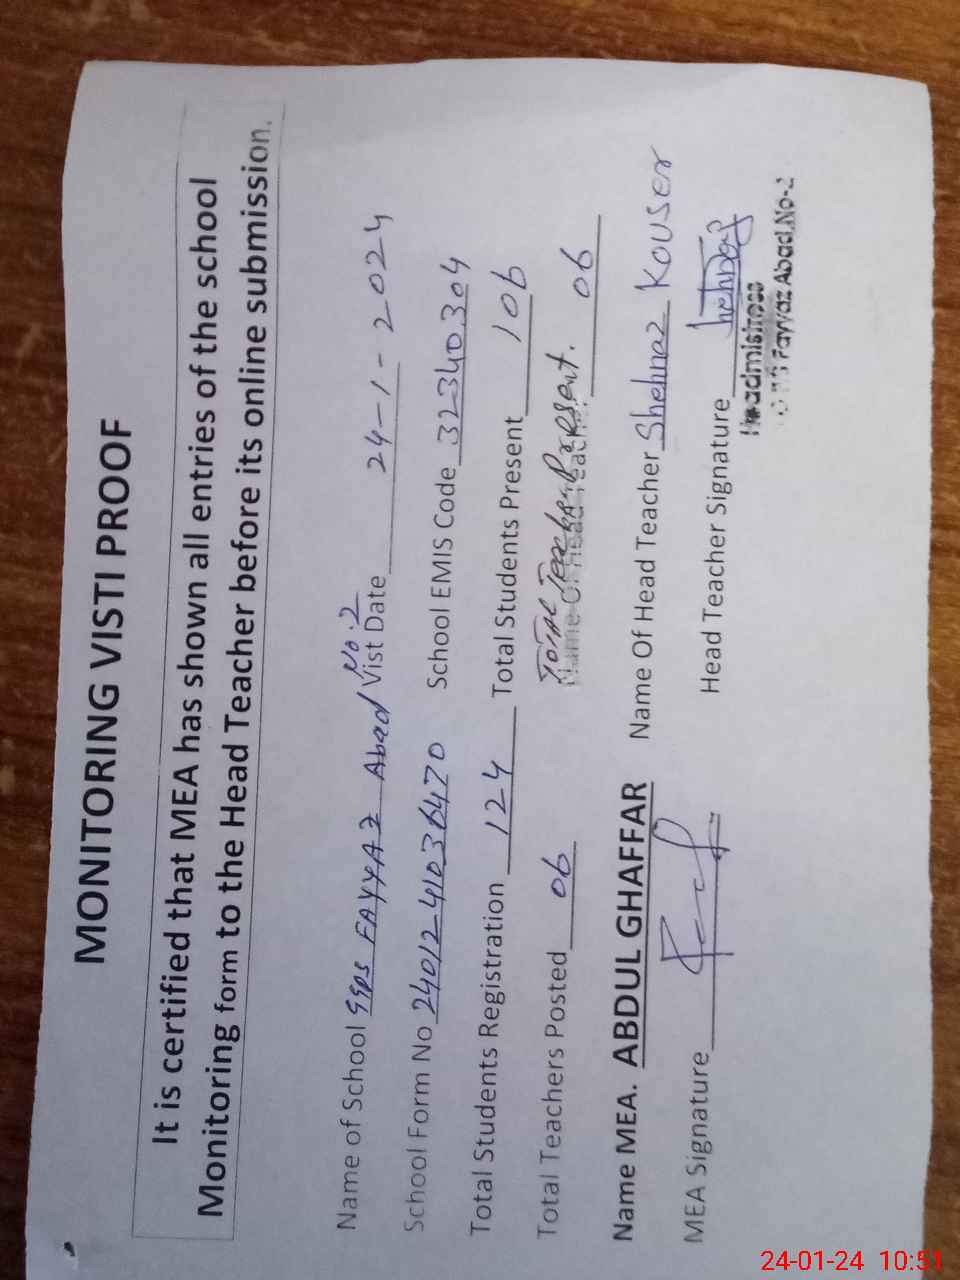 MONITORING VISTI PROOF
It is certified that MEA has shown all entries of the school
Monitoring form to the Head Teacher before its online submission.
Name of School GGPS FAYYAZ Abad No.2 Vist Date 24-1-2024
School Form No 2401241036470 School EMIS Code 32340304
Total Students Registration 124 Total Students Present 106
Total Teachers Posted 06 Total Teacher Present. 06
Name Of Head Teacher
Name MEA. ABDUL GHAFFAR Name Of Head Teacher Shehnaz Kouser
MEA Signature Head Teacher Signature
Headmistress
Fayyaz Abad.No-2
24-01-24 10:51